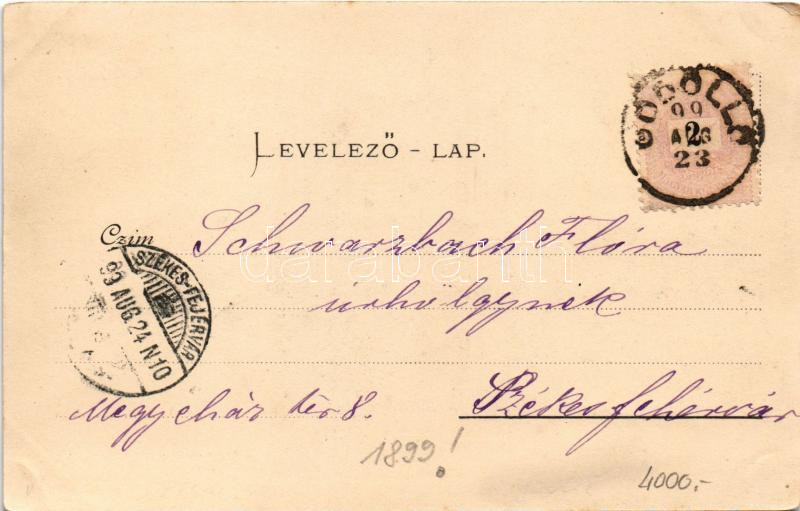 GÖDÖLLŐ
99
AUG
23
2
LEVELEZŐ - LAP.
Czim
Schwarzbach Flóra
úrhölgynek
SZÉKES-FEJÉRVÁR
99 AUG. 24 N10
Megyeház tér 8. Székesfehérvár
1899!
4000.-
darabanth